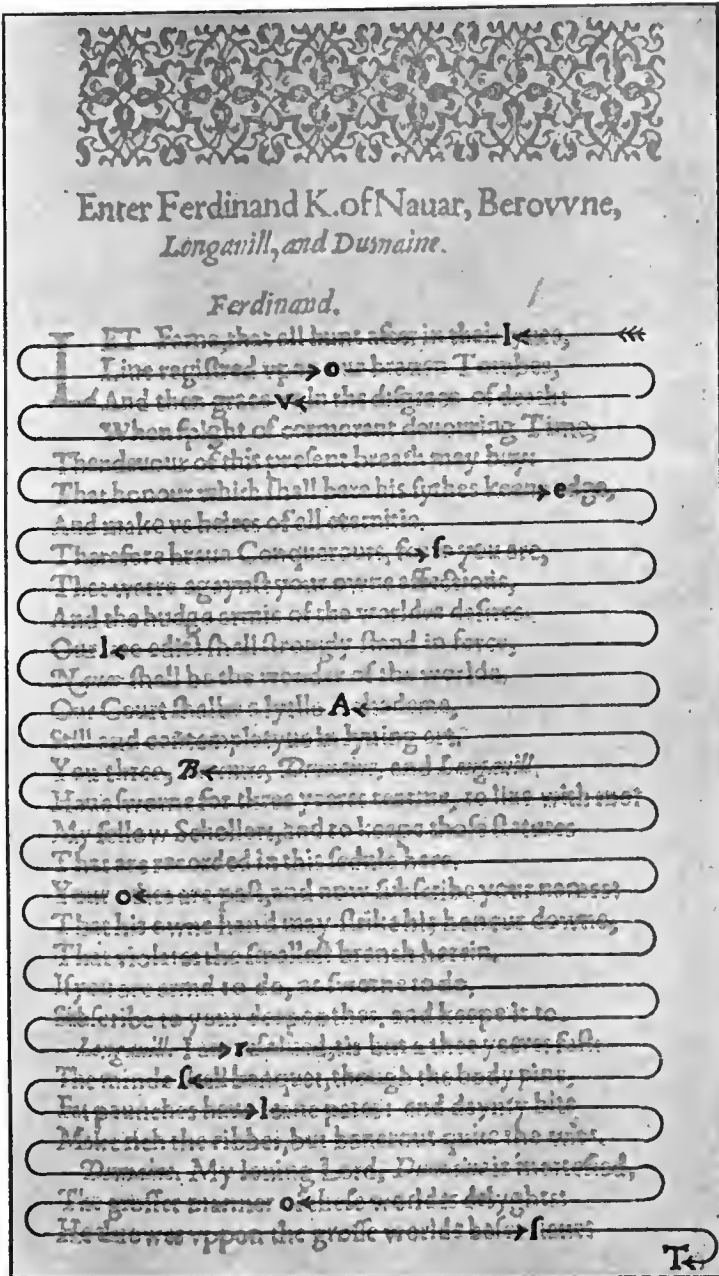 Enter Ferdinand K. of Nauar, Berovvne,
Longauill, and Dumaine.
Ferdinand.
LET Fame, that all hunt after in their lyues,
Liue regiſtred vpon our braſen Tombes,
And then grace vs in the diſgrace of death:
When ſpight of cormorant deuouring Time,
Thendeuour of this preſent breath may buy:
That honour which ſhall bate his ſythes keene edge,
And make vs heires of all eternitie.
Therefore braue Conquerours, for ſo you are,
That warre agaynſt your owne affections,
And the hudge armie of the worldes deſires.
Our late edict ſhall ſtrongly ſtand in force,
Nauar ſhall be the wonder of the worlde.
Our Court ſhalbe a lytlle Achademe,
Still and contemplatyue in lyuing art.
You three, Berowne, Dumaine, and Longauill,
Haue ſworne for three yeeres tearme, to liue with me:
My fellow Schollers, and to keepe thoſe ſtatutes
That are recorded in this ſedule here.
Your othes are paſt, and now ſubſcribe your names:
That his owne hand may ſtrike his honour downe,
That violates the ſmalleſt branch herein,
If you are armd to do, as ſworne to do,
Subſcribe to your deepe othes, and keepe it to.
Longauill. I am reſolued, tis but a three yeeres faſt:
The minde ſhall banquet, though the body pine,
Fat paunches haue leane pates: and daynty bits
Make rich the ribbes, but bancrout quite the wits.
Dumaine. My louing Lord, Dumaine is mortefied,
The groſſer manner of theſe worldes delyghts:
He throwes vppon the groſſe worlds baſer ſlaues
T